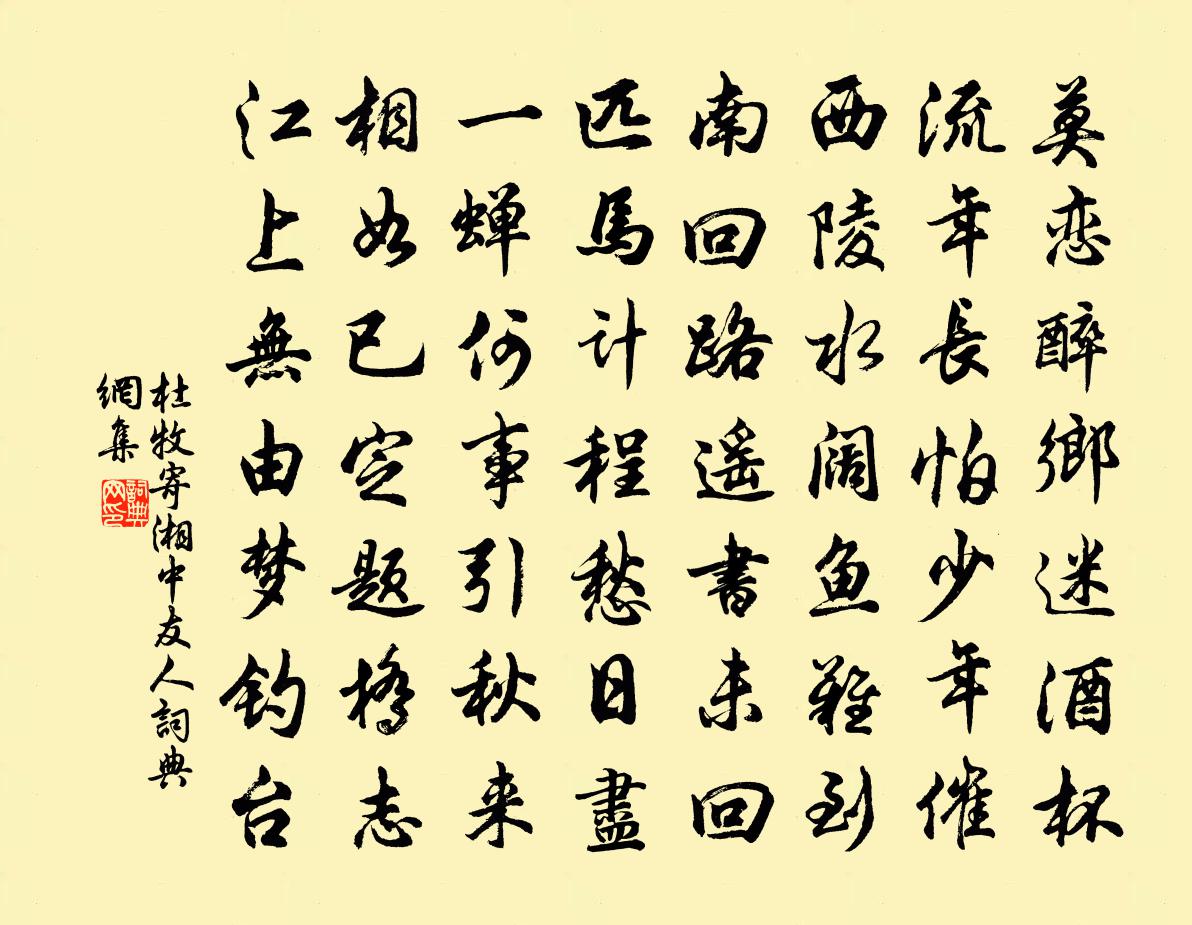 莫恋醉鄉迷酒杯
流年長怕少年催
西陵水阔鱼難到
南回路遥書未回
匹馬计程愁日盡
一蝉何事引秋来
相如已定题橋志
江上無由梦钓台
杜牧寄湘中友人詞典
網集
詞典
网印